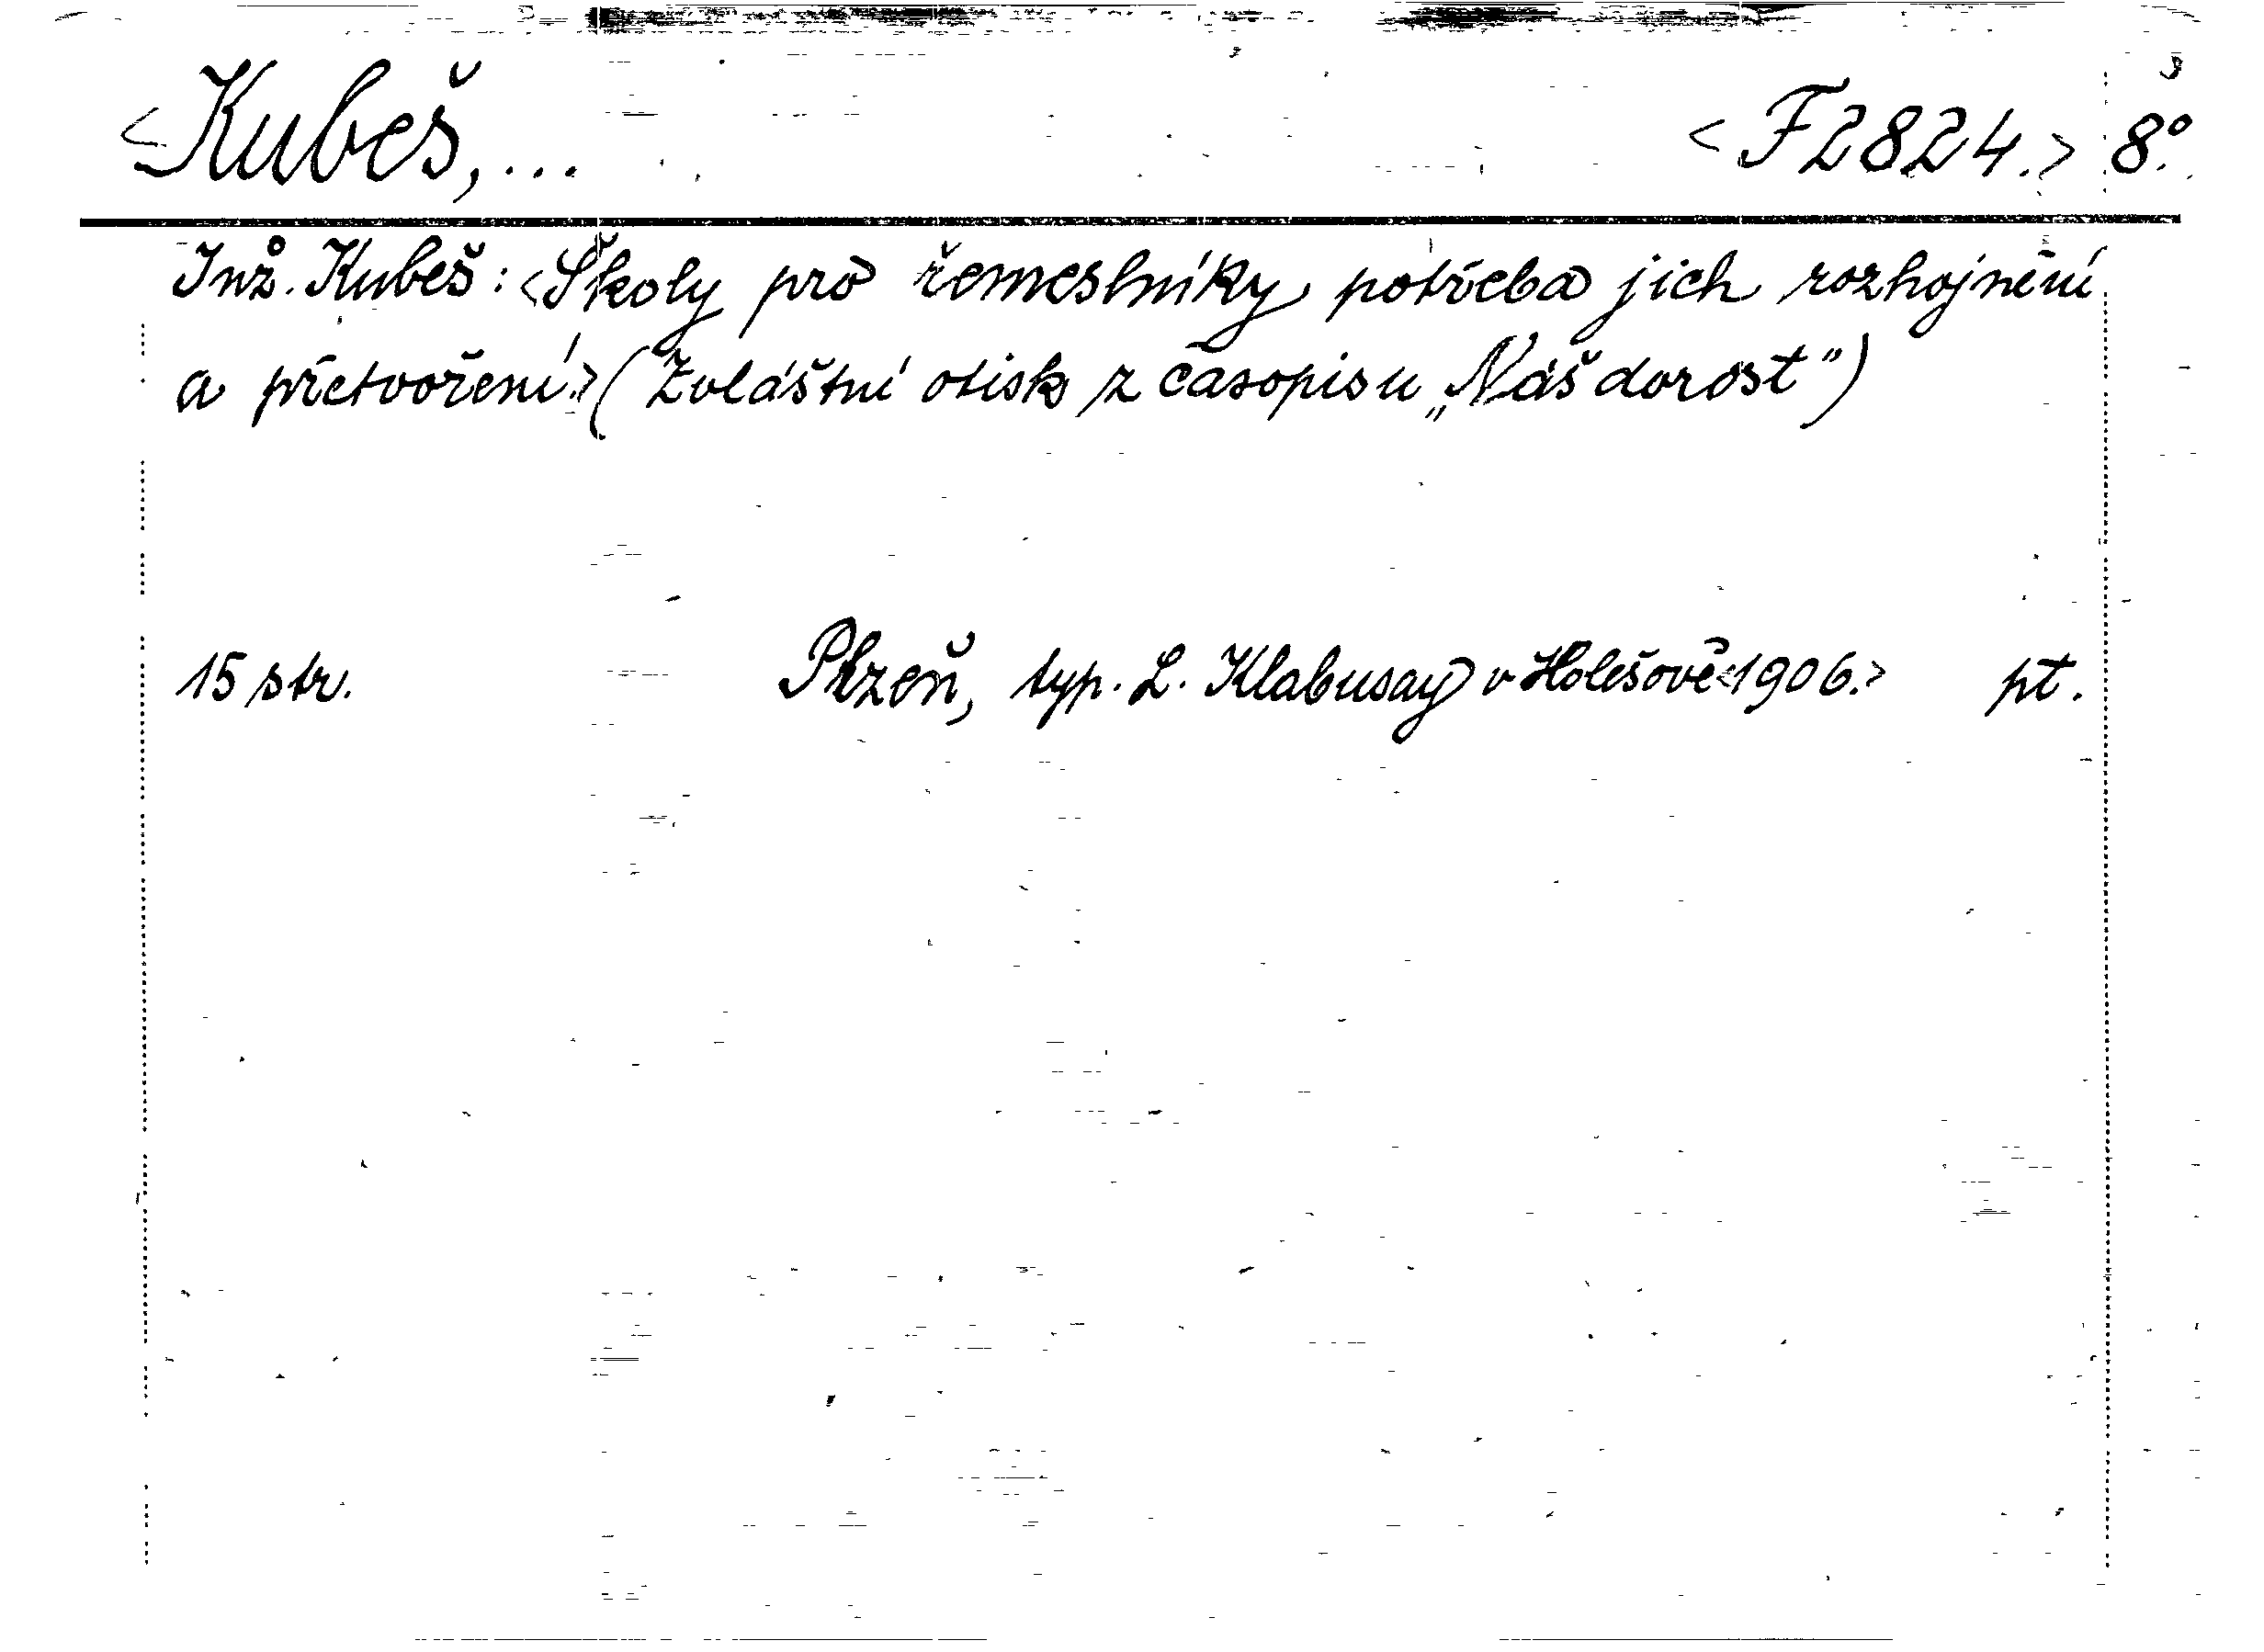 <Kubeš, ... <F2824.> 8°.
Inž. Kubeš: <Školy pro řemeslníky potřeba jich rozhojnění
a přetvoření.> (Zvláštní otisk z časopisu „Náš dorost")
15 str. Plzeň, typ. L. Klabusay v Holešově <1906.> pt.